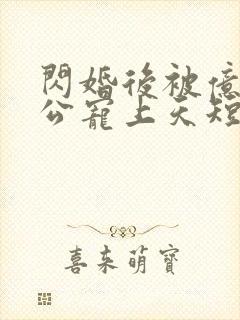 閃婚後被億
公寵上天短
喜来萌寶